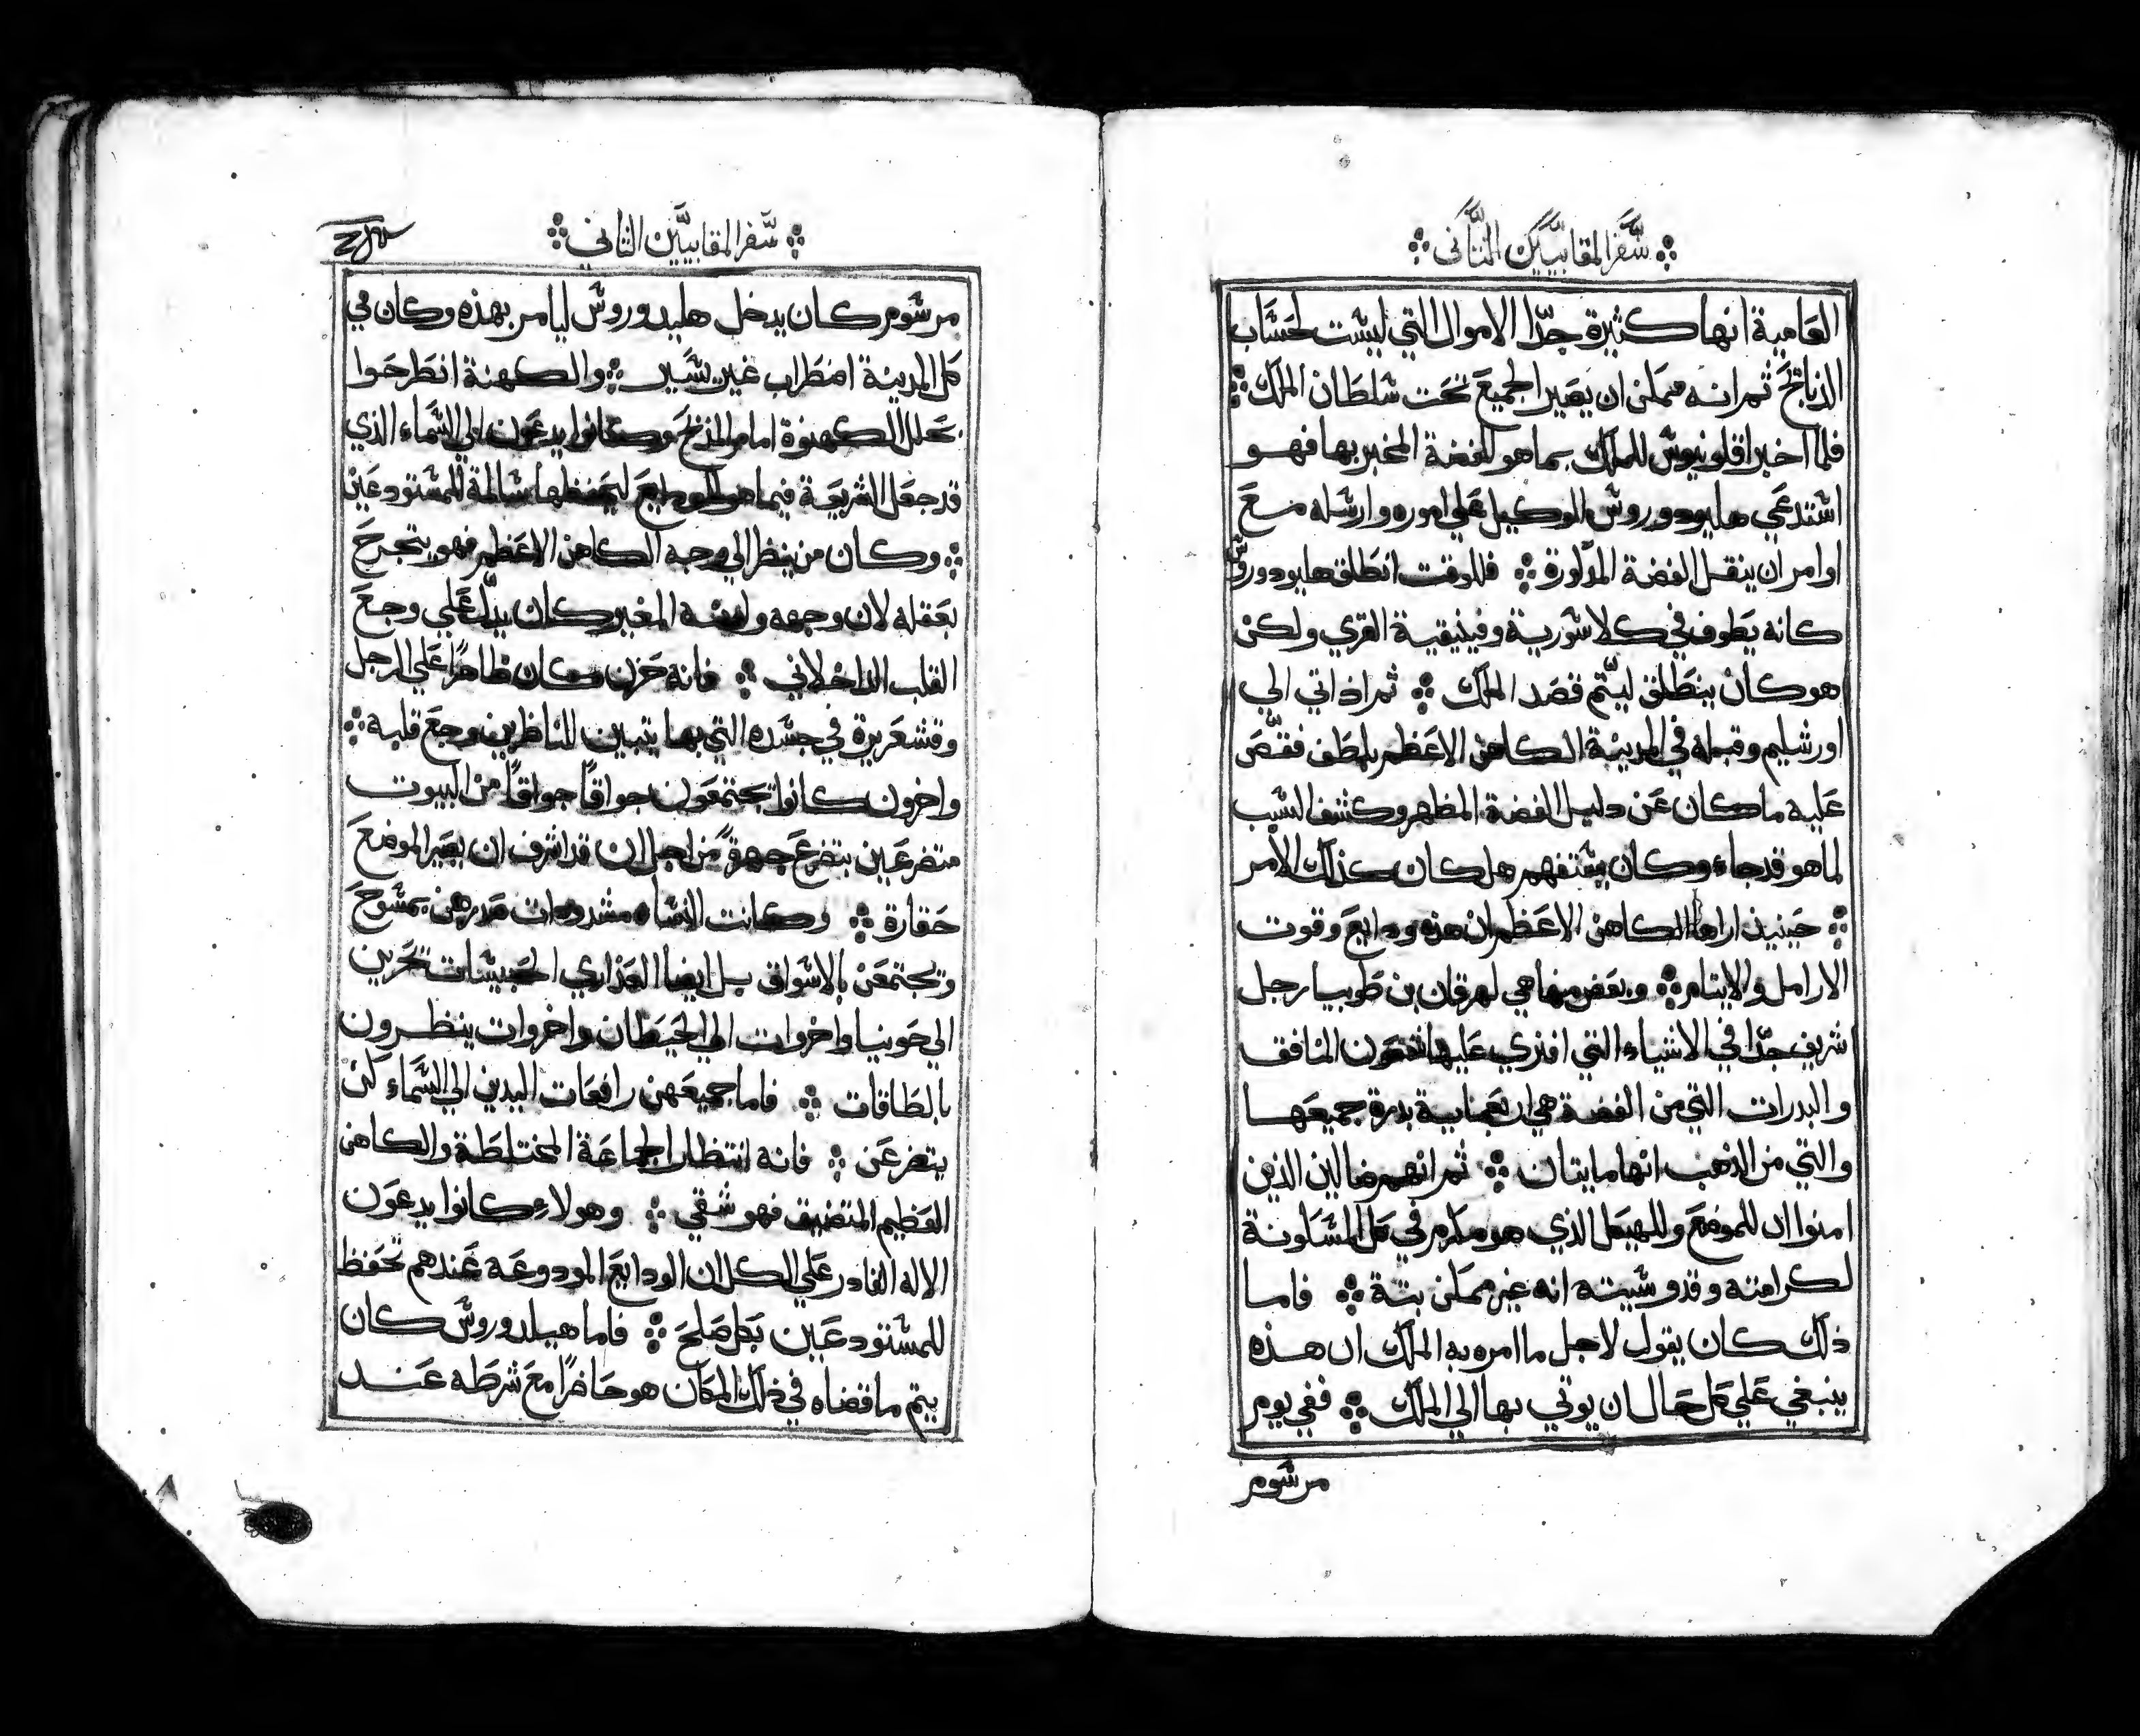 سفر المقابيين الثاني
العامية انها كثيرة جدّا الاموال التي ليست لحساب
الذبايح ثم انه ممكن ان يصير الجميع تحت سلطان الملك
فلما اخبر اقلونيوس للملك بما هو للفضة المخبر بها فهو
استدعي هليودوروس الوكيل علي اموره وارسله مع
اوامر ان ينقل الفضة المذكورة فللوقت انطلق هليودوروس
كانه يطوف في كلاسورية وفينيقية القري ولكن
هو كان ينطلق ليتم قصد الملك ثم اذ اتي الي
اورشليم وقبله في المدينة الكاهن الاعظم بلطف فقصّ
عليه ما كان عن دليل الفضة المظهر وكشف السبب
لما هو قد جاء وكان يستفهم هل كان كذلك الامر
حينيذ اراها الكاهن الاعظم ان هذه ودايع وقوت
الارامل والايتام وبعض منها هي لهرقان بن طوبيا رجل
شريف جدّا في الاشياء التي افتري عليها شمعون المنافق
والبدرات التي من الفضة هي اربعماية بدرة جميعها
والتي من الذهب انها مايتان ثم انهم ضالين الذين
امنوا ان للموضع وللهيكل الذي هو مكرم في كل المسكونة
لكرامته وقدوسيته انه غير ممكن بتة فاما
ذلك كان يقول لاجل ما امره به الملك ان هذه
ينبغي علي كل حال ان يوتي بها الي الملك ففي يوم
مرسوم
سفر المقابيين الثاني
مرسوم كان يدخل هليدوروس ليامر بهذه وكان في
كل المدينة اضطراب غير يسير والكهنة انطرحوا
بحلل الكهنوة امام المذبح وكانوا يدعون الي السماء الذي
قد جعل الشريعة فيما هو للودايع ليحفظها سالمة للمستودعين
وكان من ينظر الي وجه الكاهن الاعظم فهو يتجرح
بعقله لان وجهه ولونه المغير كان يدلّ علي وجع
القلب الداخلاني فانه حزن وكان ظاهرًا علي الرجل
وقشعريرة في جسده التي بها يتبين للناظرين وجع قلبه
واخرون كانوا يجتمعون جواقًا جواقًا من البيوت
متضرعين بتضرع جهرةً من اجل ان قد اشرف ان يصير الموضع
حقارة وكانت النساء مشدودات صدرهن بمسوح
وتجتمعن بالاسواق بل ايضا العذاري الحبيسات تجرين
الي حونيا واخروات الي الحيطان واخروات ينظرون
بالطاقات فاما جميعهن رافعات اليدين الي السماء كن
يتضرعن فانه انتظار الجماعة المختلطة والكاهن
العظيم المتضيق فهو شقي وهولاء كانوا يدعون
الاله القادر علي الكل ان الودايع المودوعة عندهم تحفظ
للمستودعين بكل صلح فاما هيلدوروس كان
يتم ما قضاه في ذلك المكان هو حاضرًا مع شرطه عند